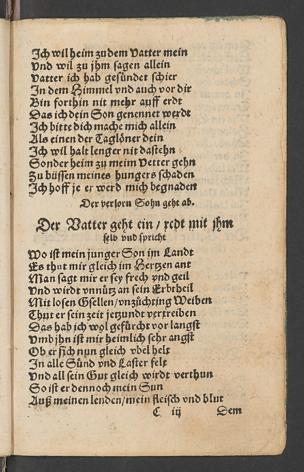 Ich wil heim zu dem Vatter mein
Vnd wil zu jhm sagen allein
Vatter ich hab gesündet schier
In dem Himmel vnd auch vor dir
Bin forthin nit mehr auff erdt
Das ich dein Son genennet werdt
Ich bitte dich mache mich allein
Als einen der Taglöner dein
Ich wil halt lenger nit dastehn
Sonder heim zu meim Vetter gehn
Zu büssen meines hungers schaden
Ich hoff je er werd mich begnaden
Der verlorn Sohn geht ab.
Der Vatter geht ein / redt mit jhm
selb vnd spricht
Wo ist mein junger Son im Landt
Es thut mir gleich im Hertzen ant
Man sagt mir er sey frech vnd geil
Vnd wirdt vnnütz an sein Erbtheil
Mit losen Gsellen / vnzüchting Weiben
Thut er sein zeit jetzundt vertreiben
Das hab ich wol gefürcht vor langst
Vmb jhn ist mir heimlich sehr angst
Ob er sich nun gleich vbel helt
In alle Sünd vnd Laster felt
Vnd all sein Gut gleich wirdt verthun
So ist er dennoch mein Sun
Auß meinen lenden / mein fleisch vnd blut
C iij Dem